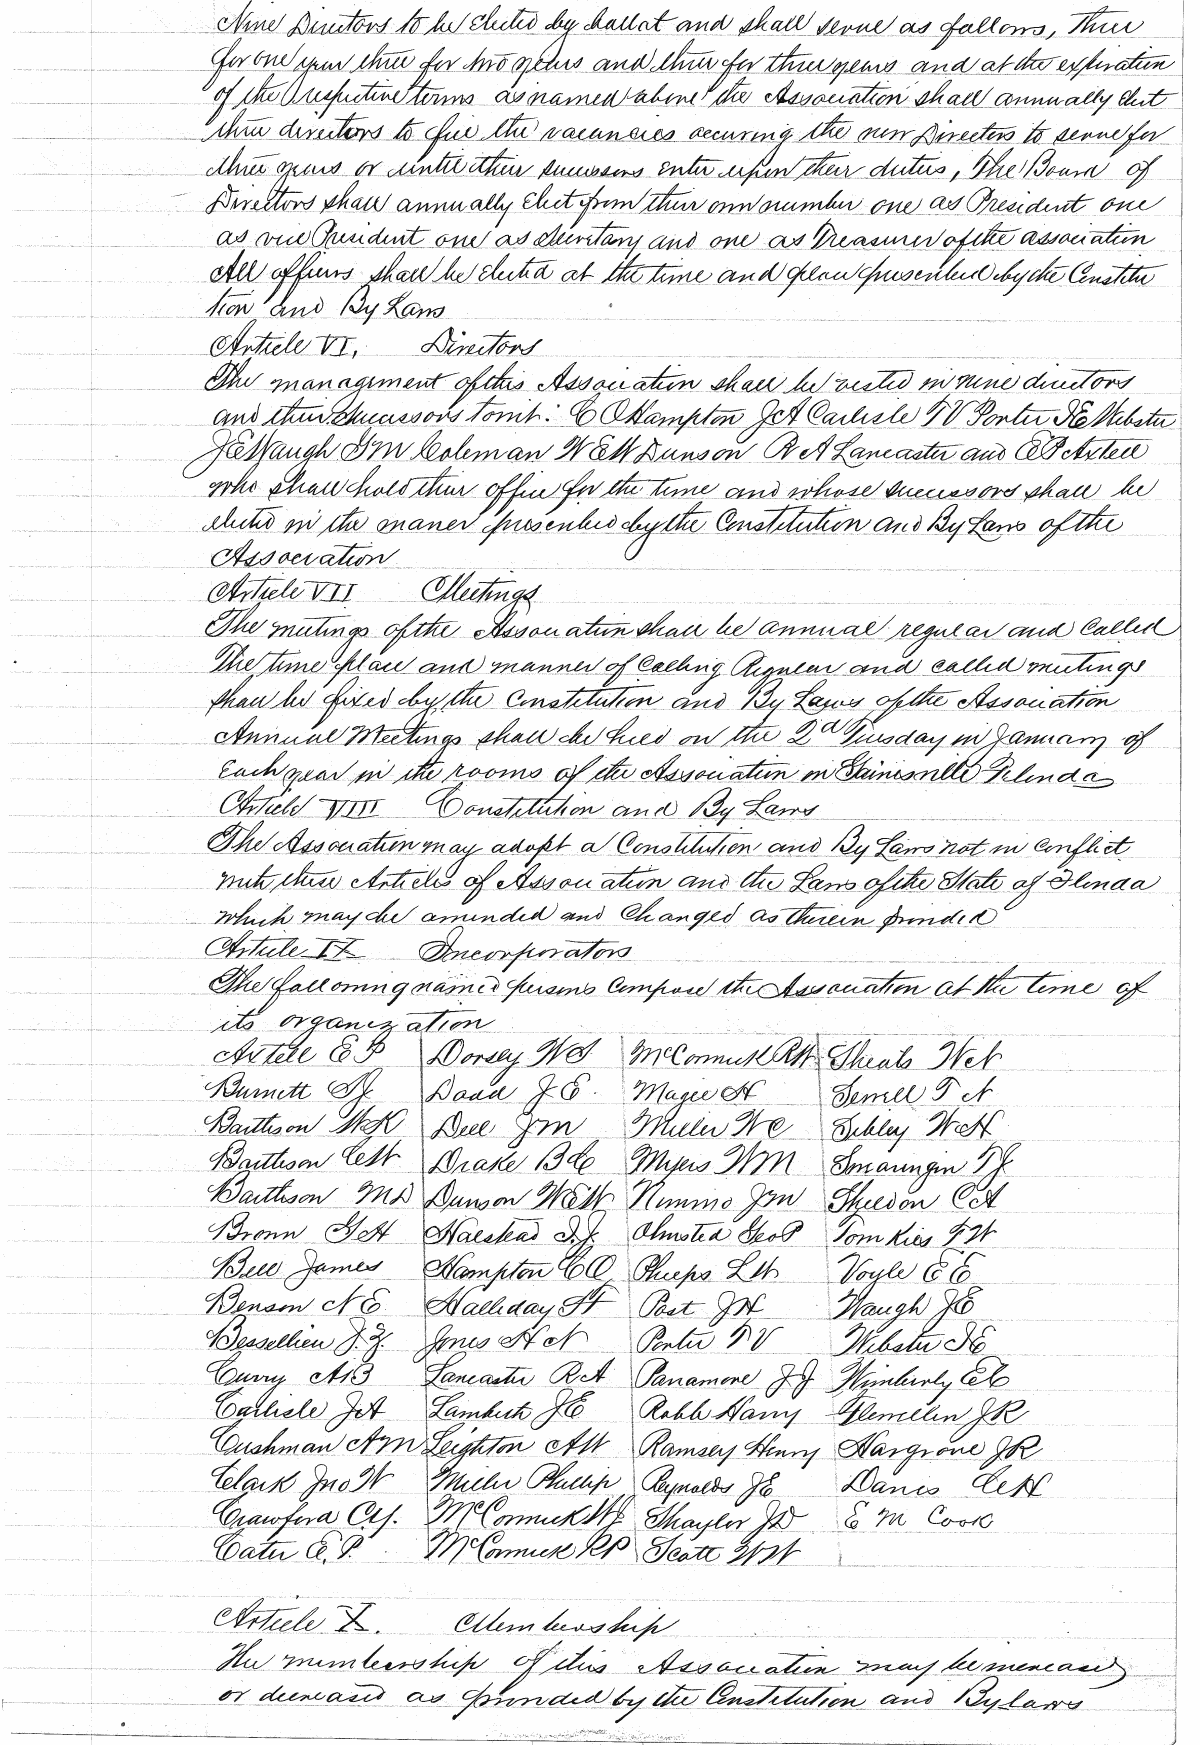 Nine Directors to be elected by ballot and shall serve as follows, Three
for one year three for two years and three for three years and at the expiration
of the respective terms as named above the Association shall annually elect
three directors to fill the vacancies occuring the new Directors to serve for
three years or until their successors enter upon their duties, The Board of
Directors shall annually elect from their own number one as President one
as vice President one as Secretary and one as Treasurer of the association
All officers shall be elected at the time and place prescribed by the Constitu
tion and By Laws
Article VI, Directors
The management of this Association shall be vested in nine directors
and their successors towit: C O Hampton J A Carlisle T V Porter F E Webster
J E Waugh J M Coleman W E W Dunson R A Lancaster and E P Axtell
who shall hold their office for the time and whose successors shall be
elected in the maner prescribed by the Constitution and By Laws of the
Association
Article VII Meetings
The meetings of the Association shall be annual regular and called
The time place and manner of calling Regular and called meetings
shall be fixed by the Constitution and By Laws of the Association
Annual Meetings shall be held on the 2d Tuesday in January of
each year in the rooms of the Association in Gainesville Florida
Article VIII Constitution and By Laws
The Association may adopt a Constitution and By Laws not in conflict
with these Articles of Association and the Laws of the State of Florida
which may be amended and changed as therein provided
Article IX Incorporators
The following named persons compose the Association at the time of
its organization
Axtell E P Dorsey W S McCormick R W Sheats W N
Burnett Dowd J E. Magee H Sewell T A
Baithison W K Dell J M Miller W C Sibley W H
Baithison C W Drake B C Myers W M Smaringen T J
Baithison M D Dunson W E W Nimmo J M Sheldon C A
Brown G A Halstead Olmsted Geo P Tomkies F W
Bell James Hampton C O Phelps L W Voyle E E
Benson N E Halliday S F Post J H Waugh J E
Bessellieu J. Z. Jones H N Porter T V Webster F E
Curry A B Lancaster R A Panamore J J Wimberly C C
Carlisle J A Lambeth J E Robb Harry Flewellen J R
Cushman A M Leighton A W Ramsey Henry Hargrove J R
Clark Jno W Miller Phillip Reynolds J E Davis C H
Crawford McCormick W J Shaylor J D E M Cook
Cater E. P. McCormick R P Scott W W
Article X. Membership
The membership of this Association may be increased
or decreased as provided by the Constitution and By laws